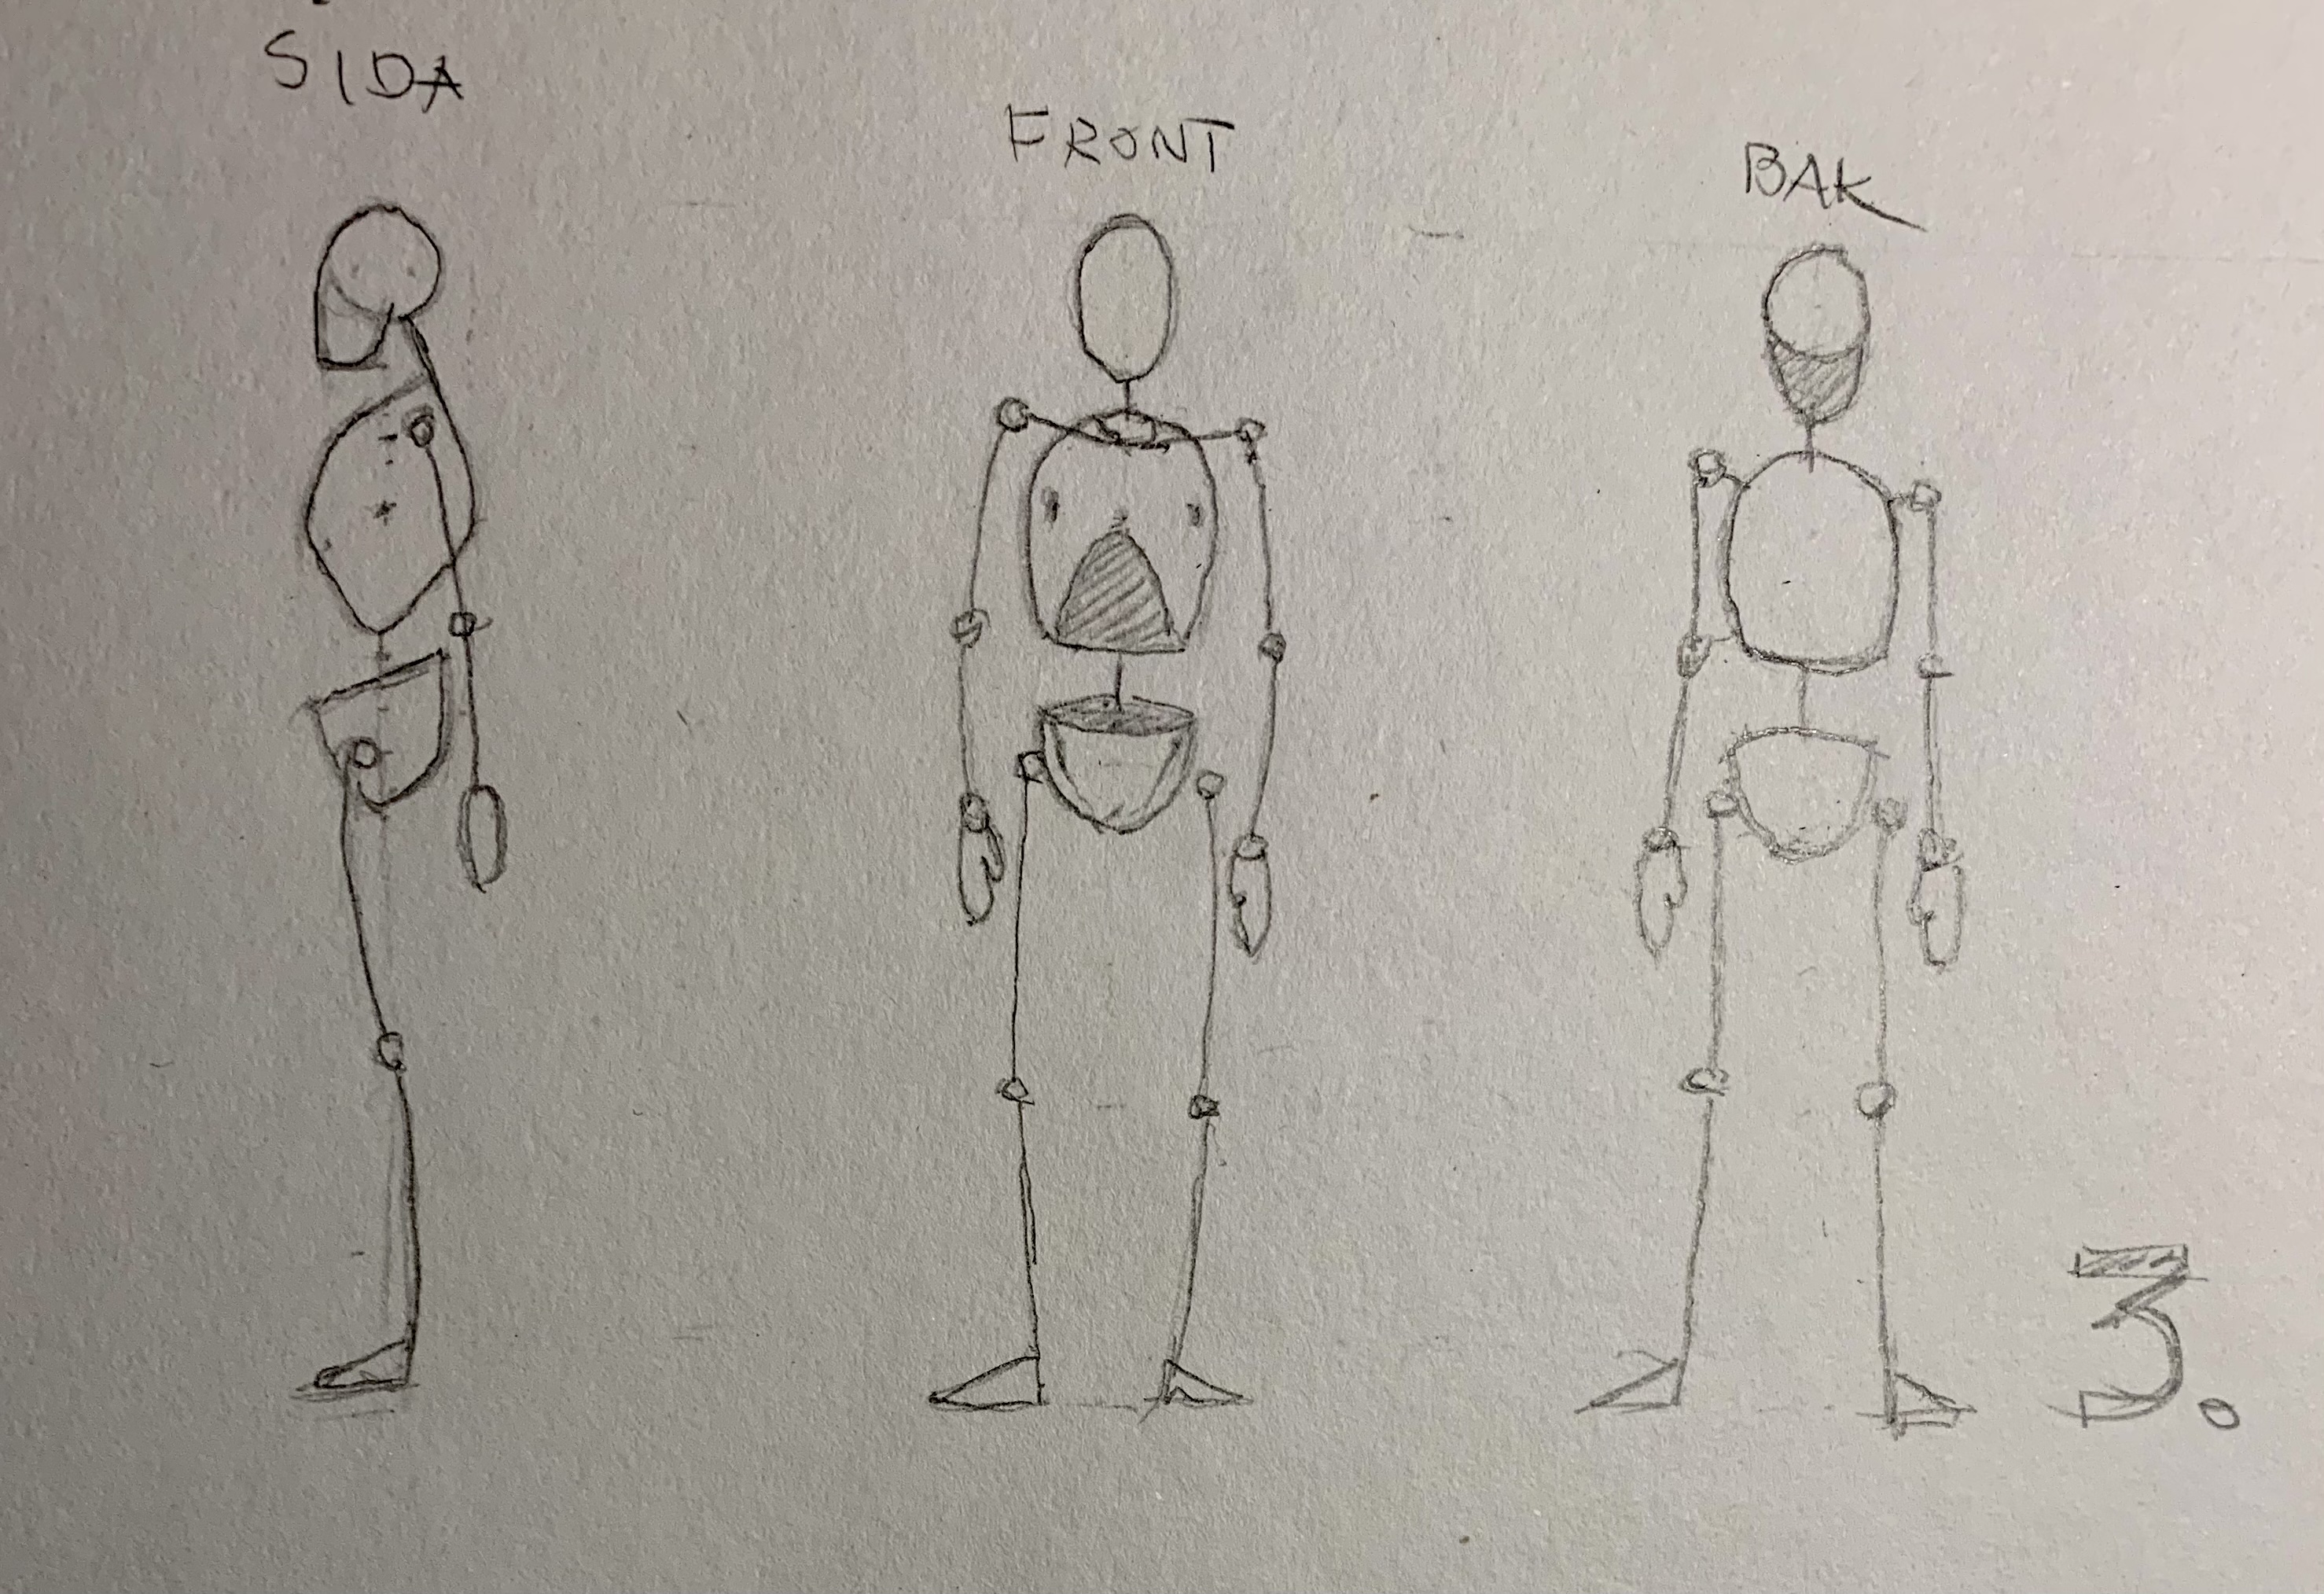 SIDA
FRONT
BAK
3.